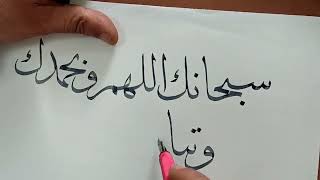 سبحانك اللهم وبحمدك
وتبا